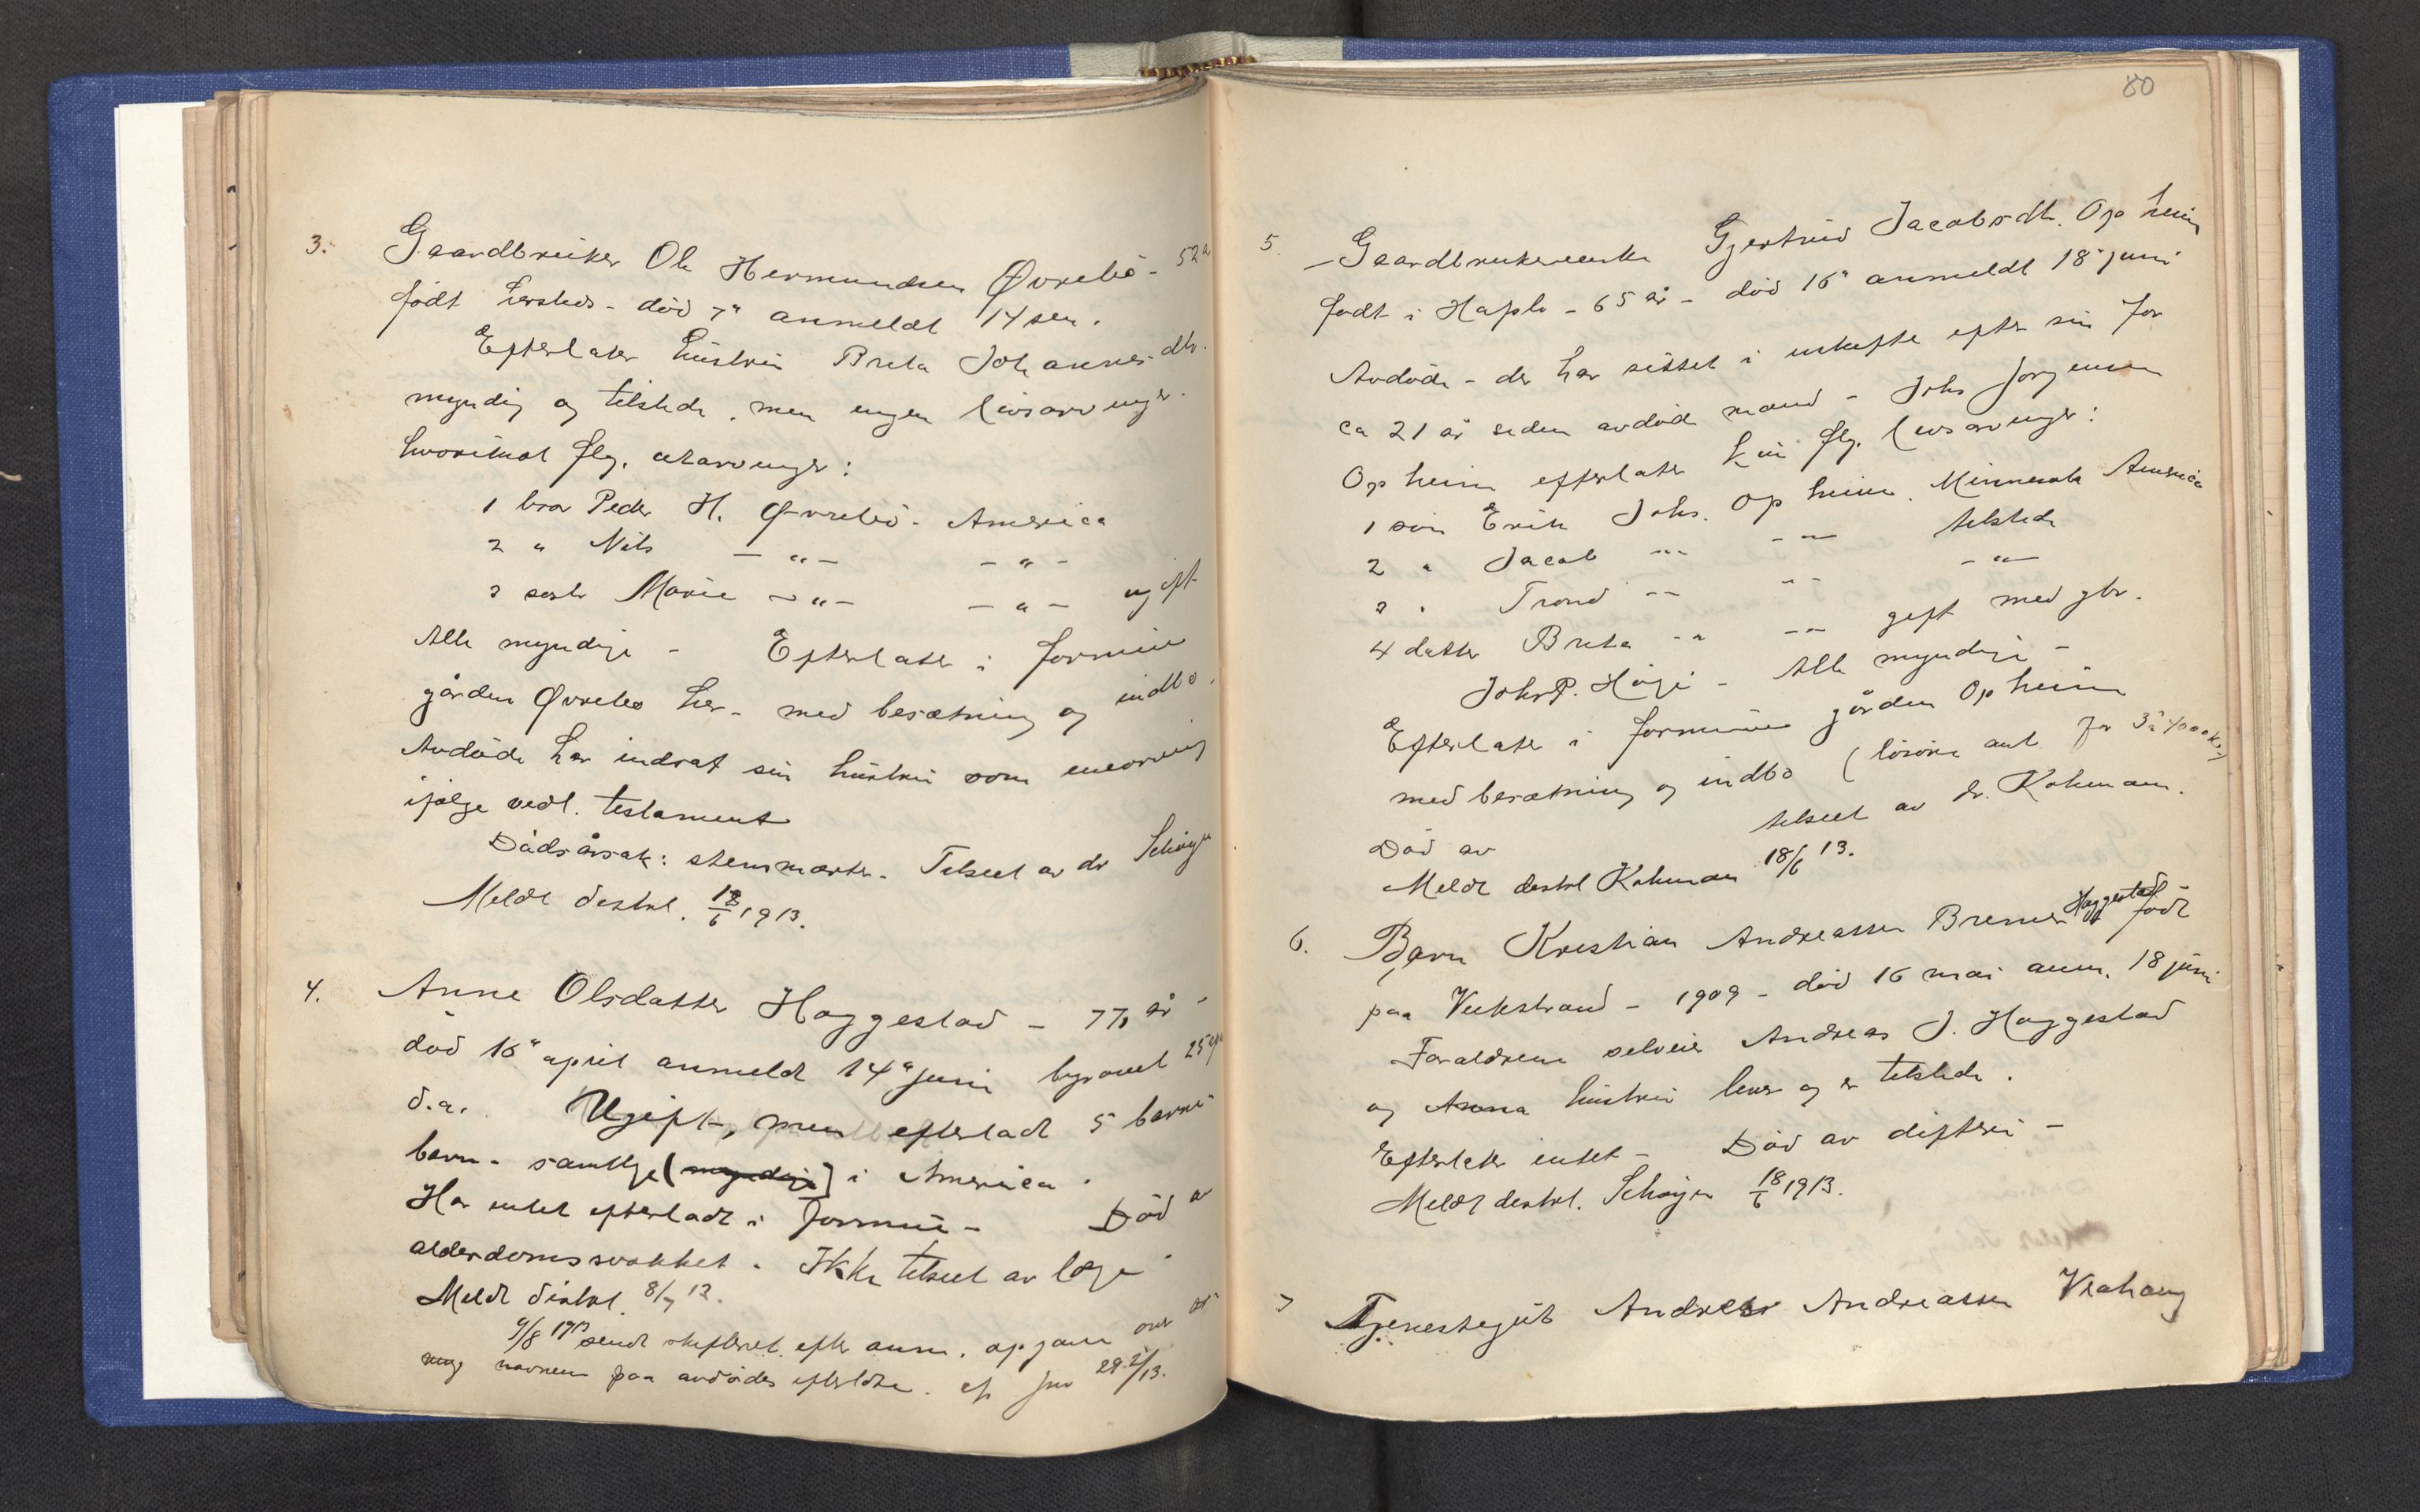 3. Gaardbruker Ole Hermundsen Øvrebö - 52 a
født hersteds - död 7" anmeldt 14 sm.
Efterlater hustru Breta Johannesdtr.
myndig og tilstede, men ingen livsarvinger.
hvorimot flg. utarvinger:
1 bror Peder H. Øvrebö - America
2 " Nils - " - - " -
3 søster Marie - " - - " - ugift
Alle myndige - Efterlater i formue
gården Øvrebö her - med besætning og indbo.
Avdöde har indsat sin hustru som enearving
ifølge vedl. testament
Dödsårsak: Tilseet av dr Schøyen
Meldt distrl. 18/6 1913.
4. Anne Olsdatter Haggestad - 77 år -
död 16" april anmeldt 14" juni begravet 25 april
d.a. Ugift, men efterladt 5 barne-
barn - samtlige (myndige) i America.
Har intet efterladt i formue - Död av
alderdomssvakhet. Ikke tilseet av læge
Meldt distrl. 8/7 13.
9/8 1913 sendt skifteret. efter anm. opgave over
navnene paa avdödes efterladte. cfr jnr 29
80
5. Gaardbrukerenke Gjertrud Jacobsdtr. Opheim
født i Hafslo - 65 år - död 16" anmeldt 18" juni
Avdöde - der har sittet i uskifte efter sin for
ca 21 år siden avdöde mand - Johs Jørgensen
Opheim efterlater kun flg. livsarvinger:
1 sön Erik Johs. Opheim. Minnesota America
2 " Jacob - " - - " - tilstede
3 " Trond - " - - " - - " -
4 datter Breta - " - " gift med gbr.
Johs P. Høgi - Alle myndige -
Efterlater i formue gården Opheim
med besætning og indbo (lösöre ant. for 3 à 4000 kr.)
Död av tilseet av dr. Kohmann.
Meldt distrl Kohman 18/6 13.
6. Barn Kristian Andreassen Bremer Haggestad født
paa Veitestrand - 1909 - död 16 mai anm. 18 juni
Forældrene selveier Andreas J. Haggestad
og Anna hustru lever og er tilstede.
Efterlater intet - Död av difteri -
Meldt distrl. Schøyen 18/6 1913.
7 Tjenestegut Andreas Andreassen